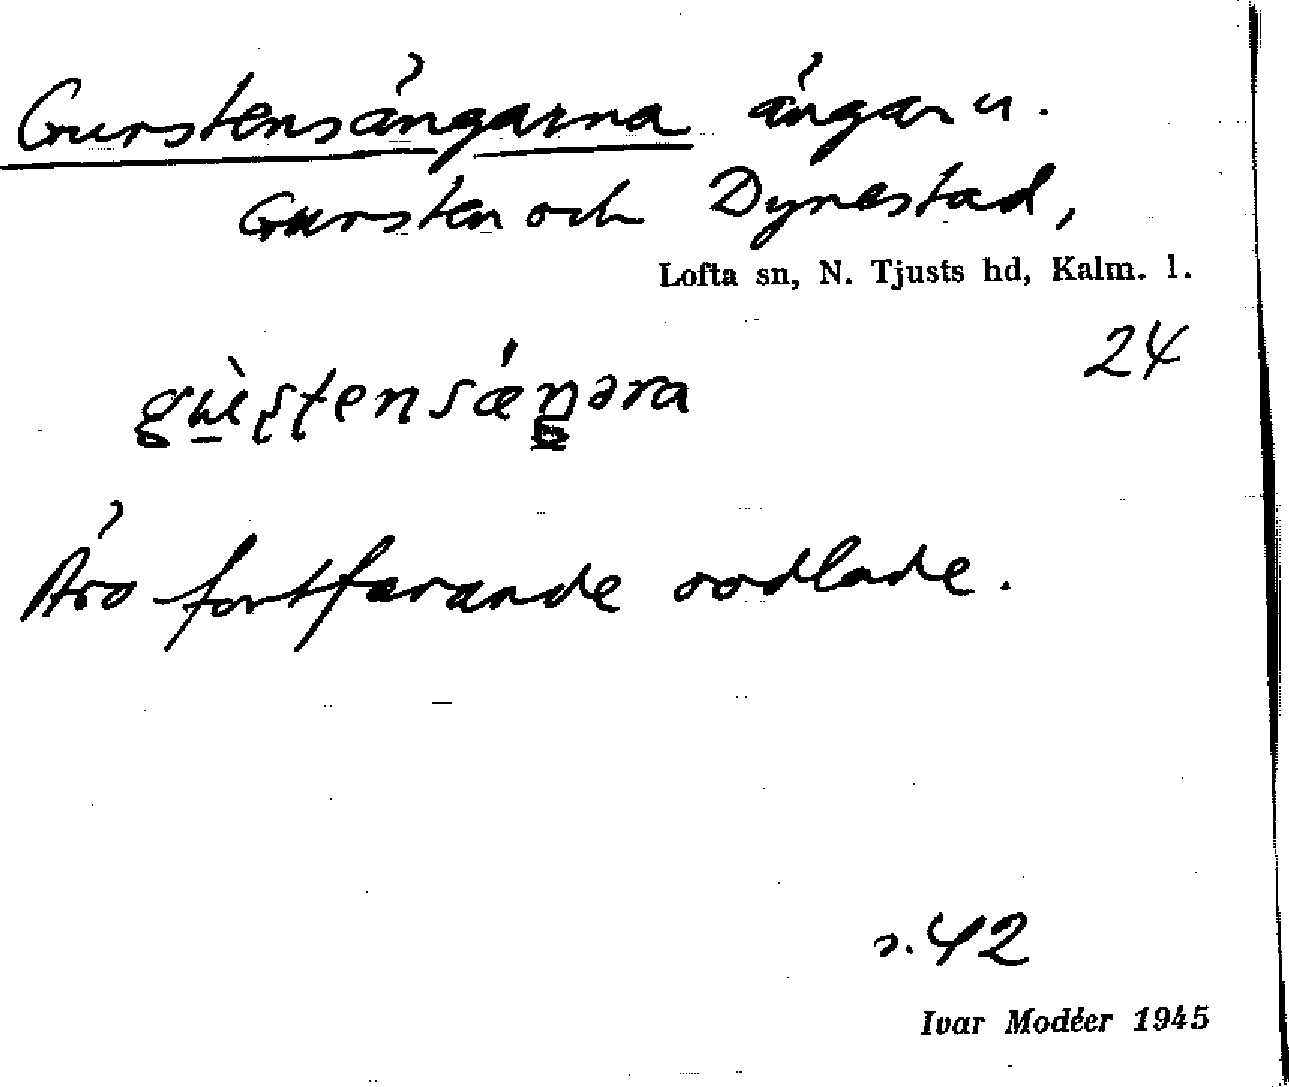 Gurstensängarna ängar u.
Gursten och Dynestad,
Lofta sn, N. Tjusts hd, Kalm. l.
24
Äro fortfarande oodlade.
s. 42
Ivar Modéer 1945